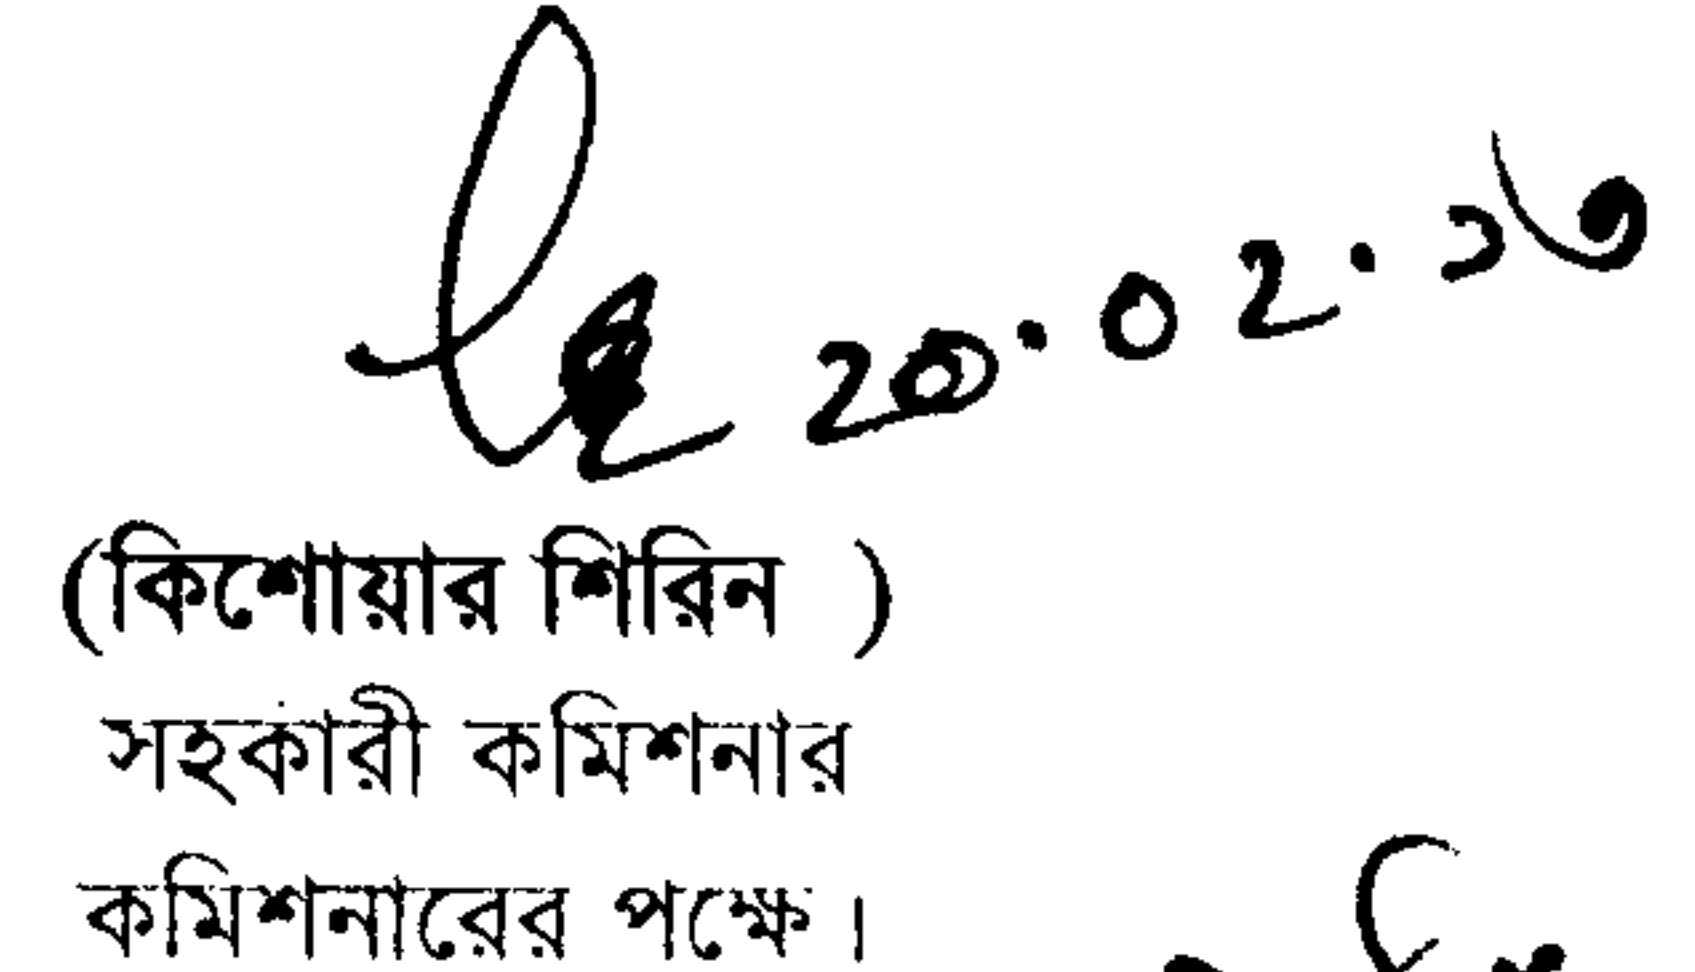 ২০.০২.১৬
(কিশোয়ার শিরিন )
সহকারী কমিশনার
কমিশনারের পক্ষে।